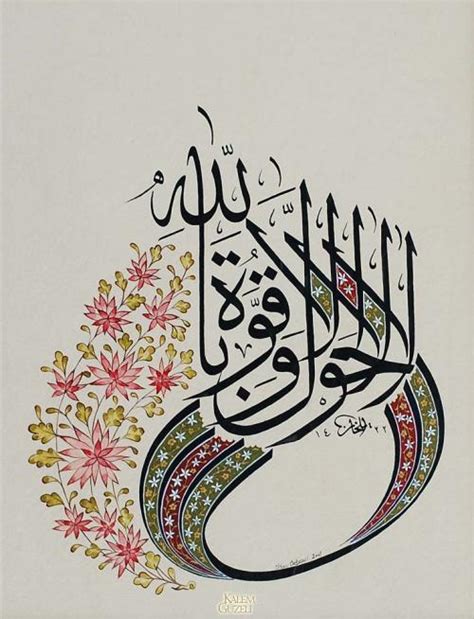 لا حول ولا قوة إلا بالله
١٤٢٢
KALEM
GÜZELİ